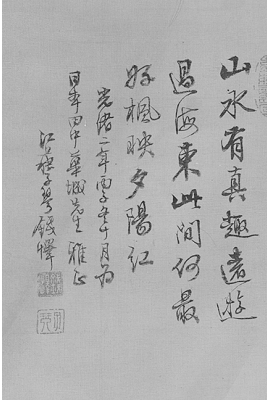 山水有真趣遠遊
過海東此間何最
好楓映夕陽紅
光緒二年丙子十月為
日本田中華城先生雅正
江蘇子琴錢懌